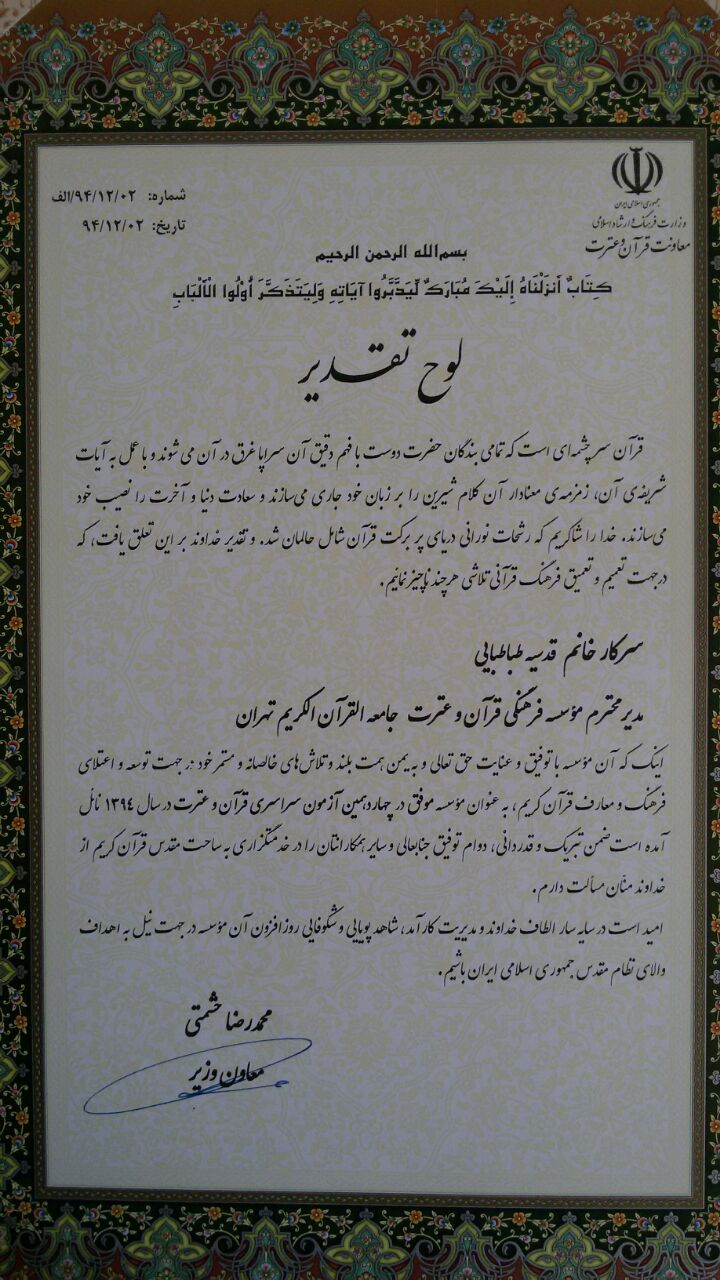 جمهوری اسلامی ایران
وزارت فرهنگ و ارشاد اسلامی
معاونت قرآن و عترت
شماره: ۹۴/۱۲/۰۲/الف
تاریخ: ۹۴/۱۲/۰۲
بسم‌الله الرحمن الرحیم
كِتَابٌ أَنزَلْنَاهُ إِلَيْكَ مُبَارَكٌ لِّيَدَّبَّرُوا آيَاتِهِ وَلِيَتَذَكَّرَ أُوْلُوا الْأَلْبَابِ
لوح تقدیر
قرآن سرچشمه‌ای است که تمامی بندگان حضرت دوست با فهم دقیق آن سراپا غرق در آن می شوند و با عمل به آیات
شریفه‌ی آن، زمزمه‌ی معنادار آن کلام شیرین را بر زبان خود جاری می‌سازند و سعادت دنیا و آخرت را نصیب خود
می‌سازند. خدا را شاکریم که رشحات نورانی دریای پر برکت قرآن شامل حالمان شد. و تقدیر خداوند بر این تعلق یافت، که
در جهت تعمیم و تعمیق فرهنگ قرآنی تلاشی هرچند ناچیز نمائیم.
سرکار خانم قدسیه طباطبایی
مدیر محترم مؤسسه فرهنگی قرآن و عترت جامعه القرآن الکریم تهران
اینک که آن مؤسسه با توفیق و عنایت حق تعالی و به یمن همت بلند و تلاش‌های خالصانه و مستمر خود در جهت توسعه و اعتلای
فرهنگ و معارف قرآن کریم، به عنوان مؤسسه موفق در چهاردهمین آزمون سراسری قرآن و عترت در سال ۱۳۹۴ نائل
آمده است ضمن تبریک و قدردانی، دوام توفیق جنابعالی و سایر همکارانتان را در خدمتگزاری به ساحت مقدس قرآن کریم از
خداوند منّان مسألت دارم.
امید است در سایه سار الطاف خداوند و مدیریت کارآمد، شاهد پویایی و شکوفایی روزافزون آن مؤسسه در جهت نیل به اهداف
والای نظام مقدس جمهوری اسلامی ایران باشیم.
محمدرضا حشمتی
معاون وزیر